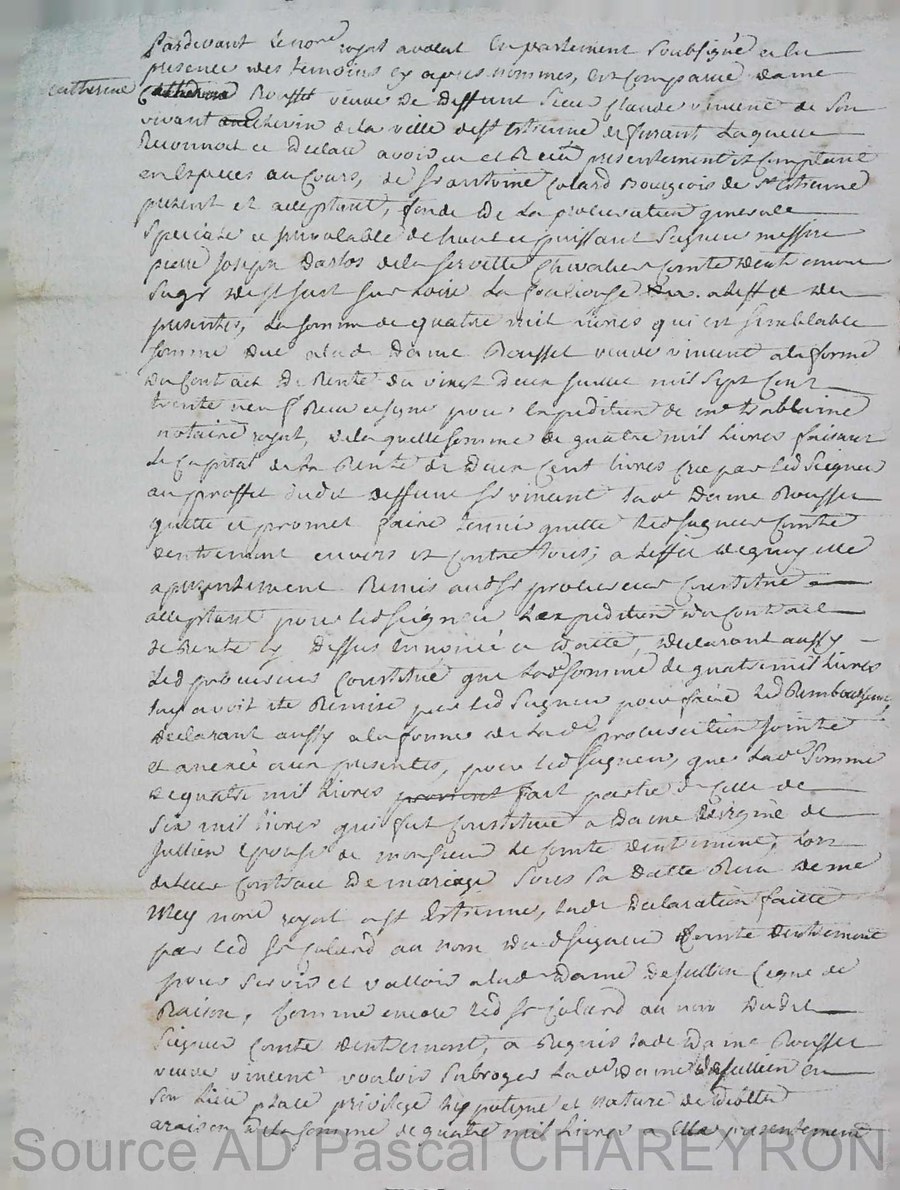 Pardevant le nore royal avocat en parlement soubsigné et en
presence des temoins cy apres nommes, est comparue dame
catherine Catherine Rousset veuve de deffunt sieur Claude vincent de son
vivant Echevin de la ville de st Estienne de furant Laquelle
Reconnoit et Declare avoir eu et Receu presentement et comptant
en especes au cours, de sr antoine Colard Bourgeois de st Estienne
present et acceptant, fondé de la procuration generalle
speciale et irrevocable de haut et puissant seigneur messire
pierre Joseph Darlos de la servette chevalier comte dentremont
seigr de st just sur Loire La a leffet des
presentes, La somme de quatre mil livres qui est semblable
somme due a lad. Dame Rousset veuve vincent a la forme
du Contract de Rente du vingt deux mil sept cent
trente neuf Receu et signé pour expedition de me
notaire royal, de laquelle somme de quatre mil livres faisant
le capital de la Rente de deux cent livres créé par led seigneur
au proffit dudit deffunt sr vincent lade Dame Rousset
quitte et promet faire tenir quitte led seigneur comte
dentremont envers et contre tous; a leffet dequoy elle
a presentement Remis audt sr procureur constitué
acceptant pour led seigneur Lexpedition du contract
de Rente cy dessus enoncé et datté, declarant aussy
led procureur constitué que lade somme de quatre mil livres
luy avoit eté Remise par led seigneur pour faire led Remboursemt,
declarant aussy a la forme de lade procuration jointe
et anexée aux presentes, pour led seigneur, que lade somme
de quatre mil livres provient fait partie de celle de
six mil livres qui fut constituée a Dame de
Jullien Epouse de monsieur le comte dentremont, lors
de leur contract de mariage sous sa datte Receu de me
Mey nore royal a st Estienne, lade declaration faitte
par led sr Colard au nom dud seigneur comte dentremont
pour servir et valloir a lade dame de Jullien ce que de
Raison, comme encore led sr Colard au nom dudit
seigneur comte dentremont, a Requis lade Dame Rousset
veuve vincent vouloir subroger lade dame de Jullien en
son lieu place privilege hypoteque et nature de dette
a raison de la somme de quatre mil livres a elle presentement
Source AD Pascal CHAREYRON